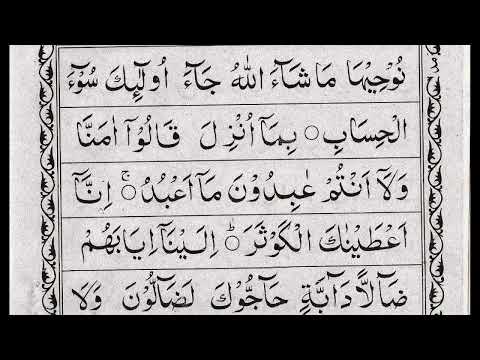 نُوْحِيْهَا مَا شَآءَ اللّٰهُ جَآءَ اُولٰٓئِكَ سُوْٓءَ
الْحِسَابِ ○ بِمَآ اُنْزِلَ قَالُوْٓا اٰمَنَّا
وَلَآ اَنْتُمْ عٰبِدُوْنَ مَآ اَعْبُدُ ○ۚ اِنَّآ
اَعْطَيْنٰكَ الْكَوْثَرَ ○ؕ اِلَيْنَآ اِيَابَهُمْ
ضَآلًّا دَآبَّةٍ حَآجُّوْكَ لَضَآلُّوْنَ وَلَا